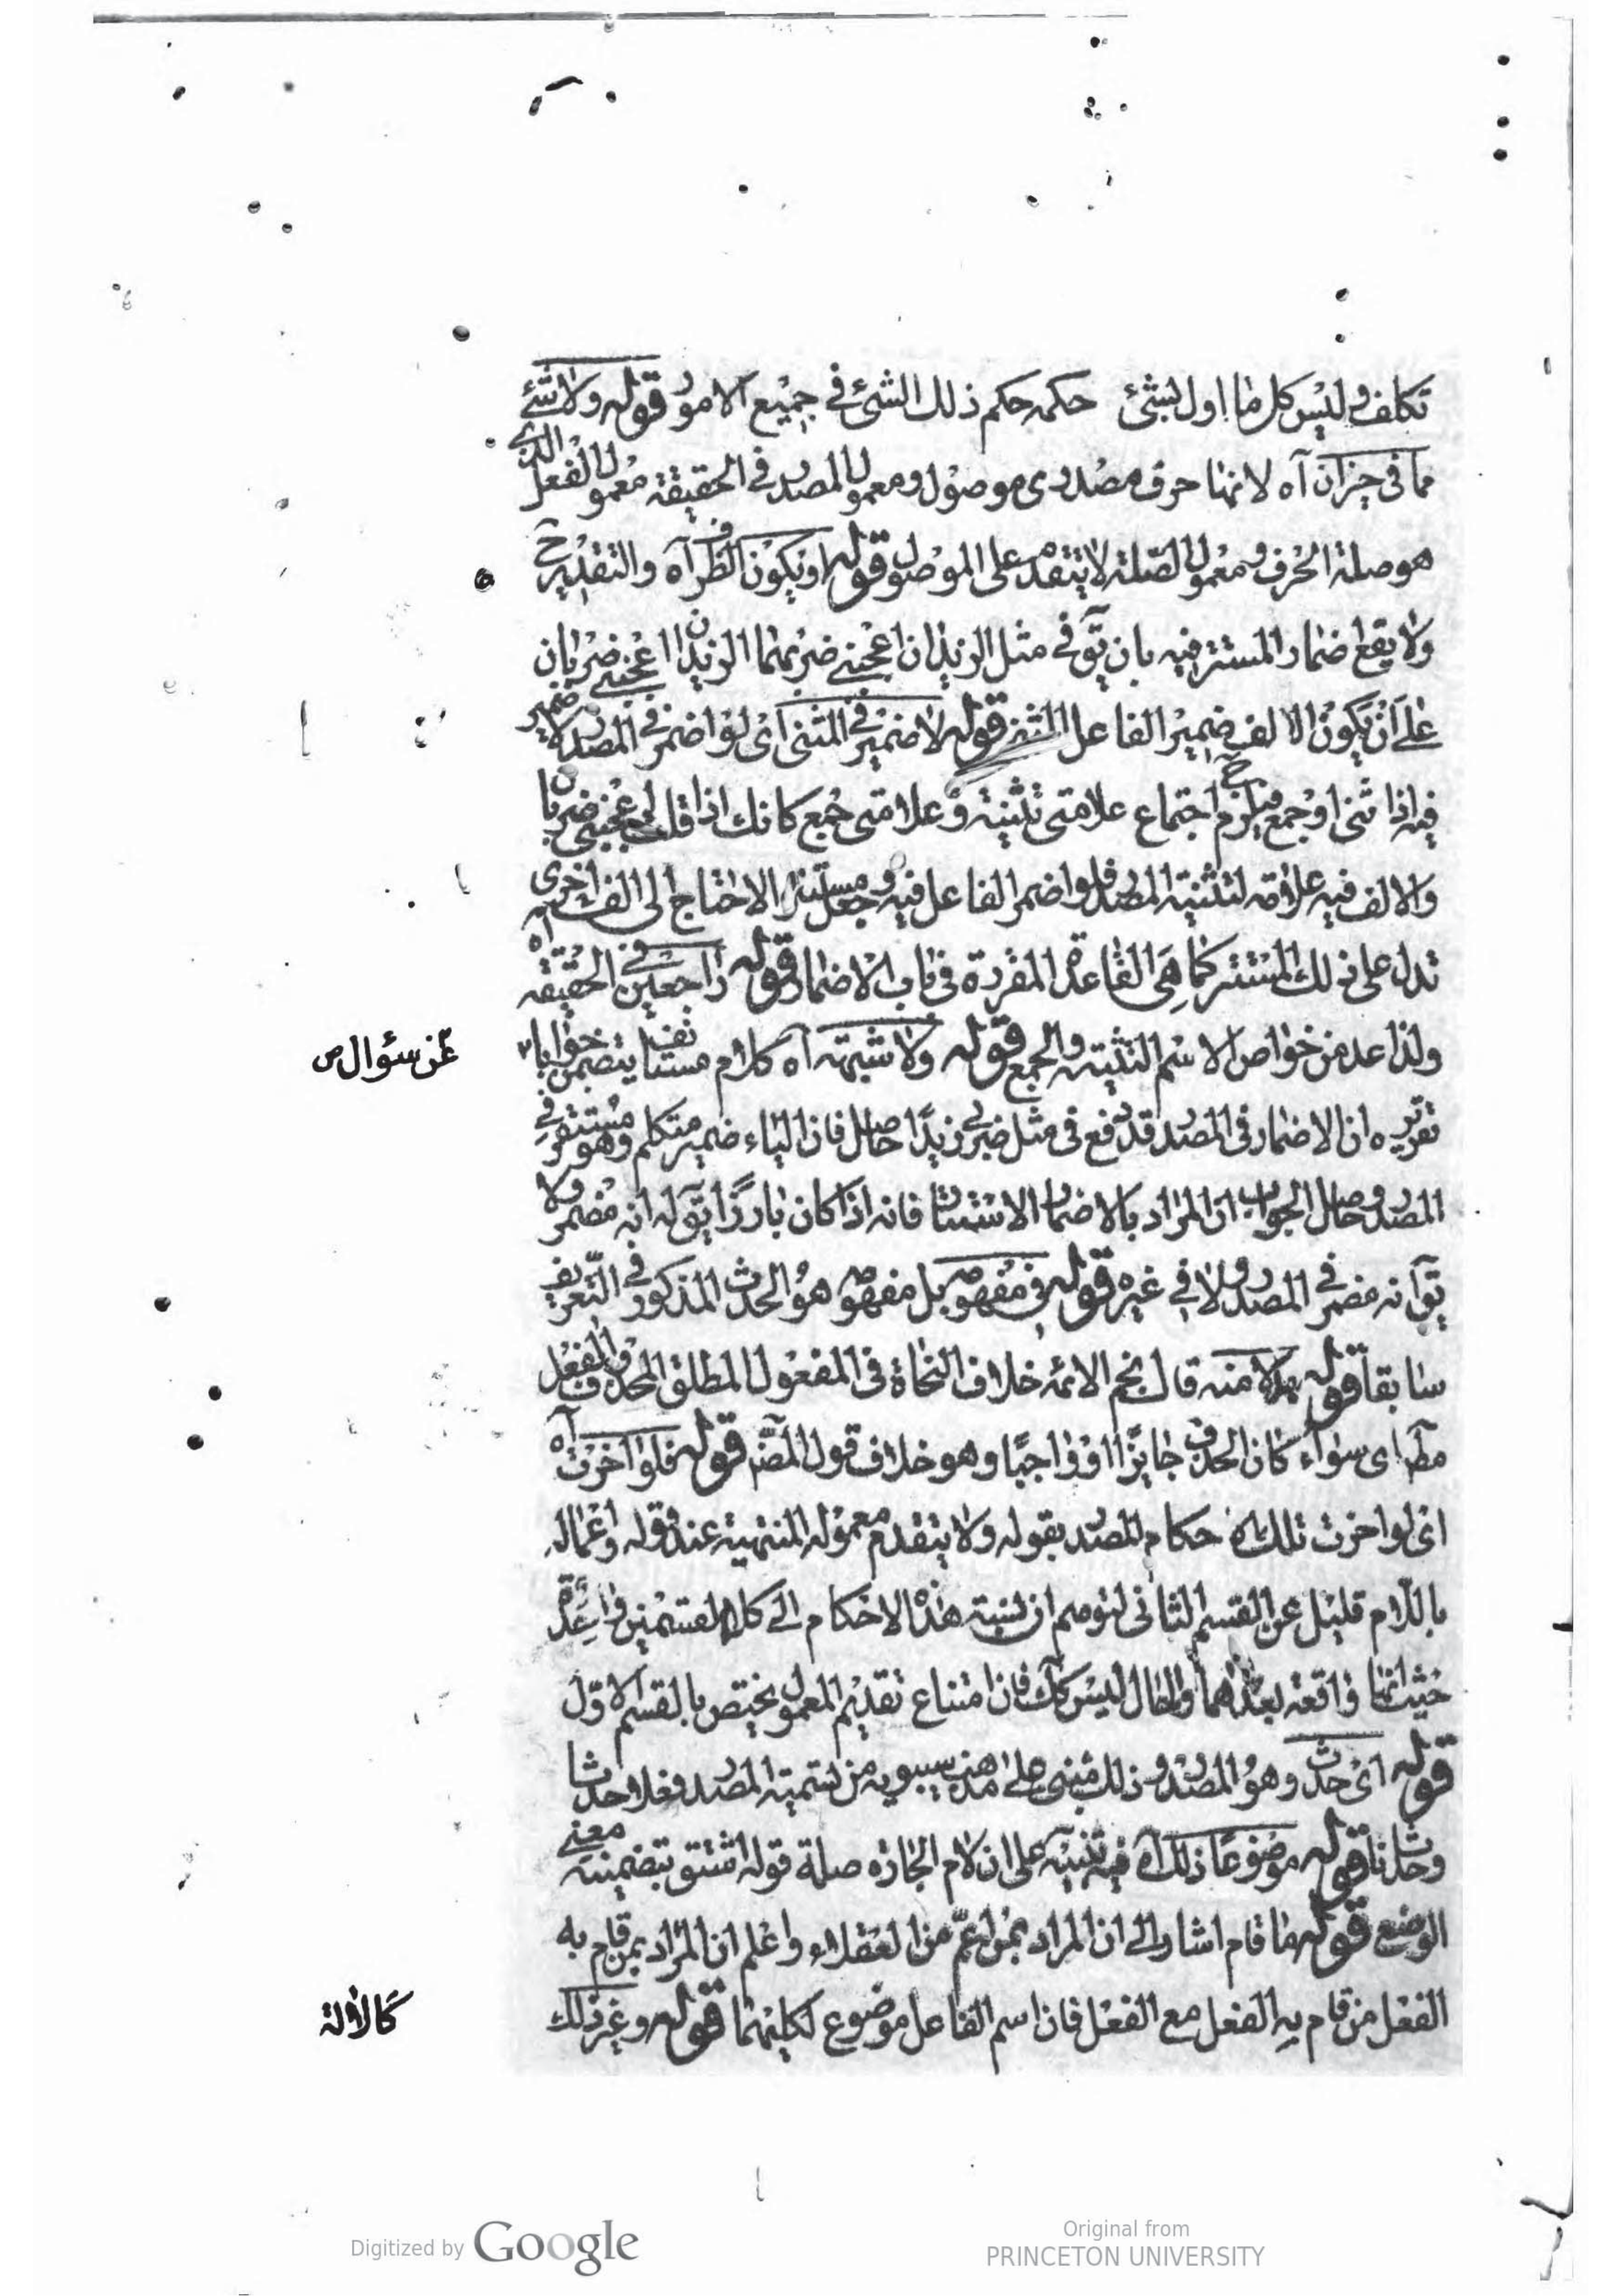 تكلف وليس كل ما اول بشئ حكمه حكم ذلك الشئ في جميع الامور قوله ولا شئ
مما في حيز ان آه لانها حرف مصدرى موصول ومعمول المصدر في الحقيقة معمول الفعل الذى
هو صلة الحرف ومعمول الصلة لا يتقدم على الموصول قوله او يكون الظرف آه والتقدير ح
ولا يقع اضمار المستتر فيه بان يق في مثل الزيدان اعجبنى ضربهما الزيدان اعجبنى ضربان
على ان يكون الالف ضمير الفاعل المثنى قوله لا ضمير في المثنى اى لو اضمر في المصدر لا ضمير
فيه اذا ثنى او جمع فيلزم ح اجتماع علامتى تثنية وعلامتى جمع كانك اذا قلت اعجبنى ضربان
والالف فيه علامة لتثنية المصدر فلو اضمر الفاعل فيه وجعل مستترا لاحتاج الى الف اخرى
تدل على ذلك المستتر كما هى القاعدة المقررة في باب الاضمار قوله راجعين في الحقيقة آه
ولذا عد من خواص الاسم التثنية والجمع قوله ولا شبهته آه كلام مستانف يتضمن جوابا
عن سؤال ص
تقريره ان الاضمار في المصدر قد وقع في مثل ضربى زيدًا حاصل فان الياء ضمير متكلم وهو مستتر في
المصدر وحاصل الجواب ان المراد بالاضمار الاستتار فانه اذا كان بارزًا يق له انه مضمر ولا
يق انه مضمر في المصدر ولا في غيره قوله في مفهومه بل مفهومه هو الحدث المذكور في التعريف
سابقا قوله بدلا منه قال نجم الائمه خلاف النحاة في المفعول المطلق المحذوف الفعل
مط اى سواء كان الحذف جايزًا او واجبًا وهو خلاف قول المص قوله فلو اخرت آه
اى لو اخرت تلك الاحكام للمصدر بقوله ولا يتقدم معموله المنتهية عند قوله واعماله
باللام قليل عن القسم الثانى لتوهم ان نسبة هذه الاحكام الى كلا القسمين واحدة
حيث انها واقعة بعدهما والحال ليس كك فان امتناع تقديم المعمول يختص بالقسم الاول
قوله اى حدث وهو المصدر وذلك مبنى على مذهب سيبويه من تسمية المصدر فعلا حدثا
وحدثانا قوله موضوعًا ذلك آه فيه تنبيه على ان لام الجاره صلة قوله اشتق بتضمينه معنى
الوضع قوله ما قام اشار الى ان المراد بمن اعم من العقلاء واعلم ان المراد بمن قام به
الفعل من قام به الفعل مع الفعل فان اسم الفاعل موضوع لكليهما قوله وغير ذلك
كالالة
Digitized by Google
Original from
PRINCETON UNIVERSITY